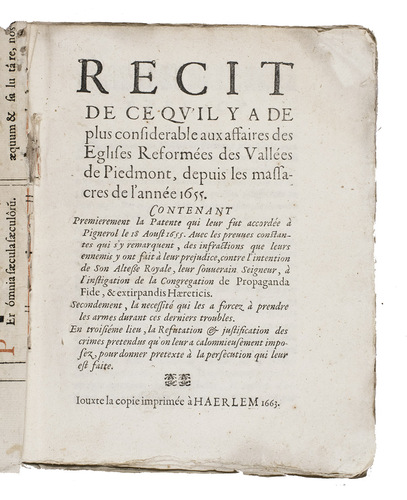 æquum & sa lu táre, nos
Et ómnia sæcula sæculórũ.
RECIT
DE CE QV'IL Y A DE
plus considerable aux affaires des
Eglises Reformées des Vallées
de Piedmont, depuis les massa-
cres de l'année 1655.
CONTENANT
Premierement la Patente qui leur fut accordée à
Pignerol le 18 Aoust 1655. Avec les preuues constan-
tes qui s'y remarquent, des infractions que leurs
ennemis y ont fait à leur prejudice, contre l'intention
de Son Altesse Royale, leur souuerain Seigneur, à
l'instigation de la Congregation de Propaganda
Fide, & extirpandis Hæreticis.
Secondement, la necessité qui les a forcez à prendre
les armes durant ces derniers troubles.
En troisiéme lieu, la Refutation & justification des
crimes pretendus qu'on leur a calomnieusement impo-
sez, pour donner pretexte à la persecution qui leur
est faite.
Iouxte la copie imprimée à HAERLEM 1663.